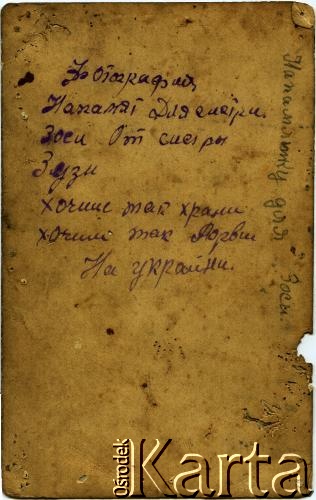 Фотография
На памят Для сестри.
Зоси От сестры
Зузи
хочиш так храни
хочиш так Порви
На украйни.
На памятку для Зоси.
Ośrodek
Karta